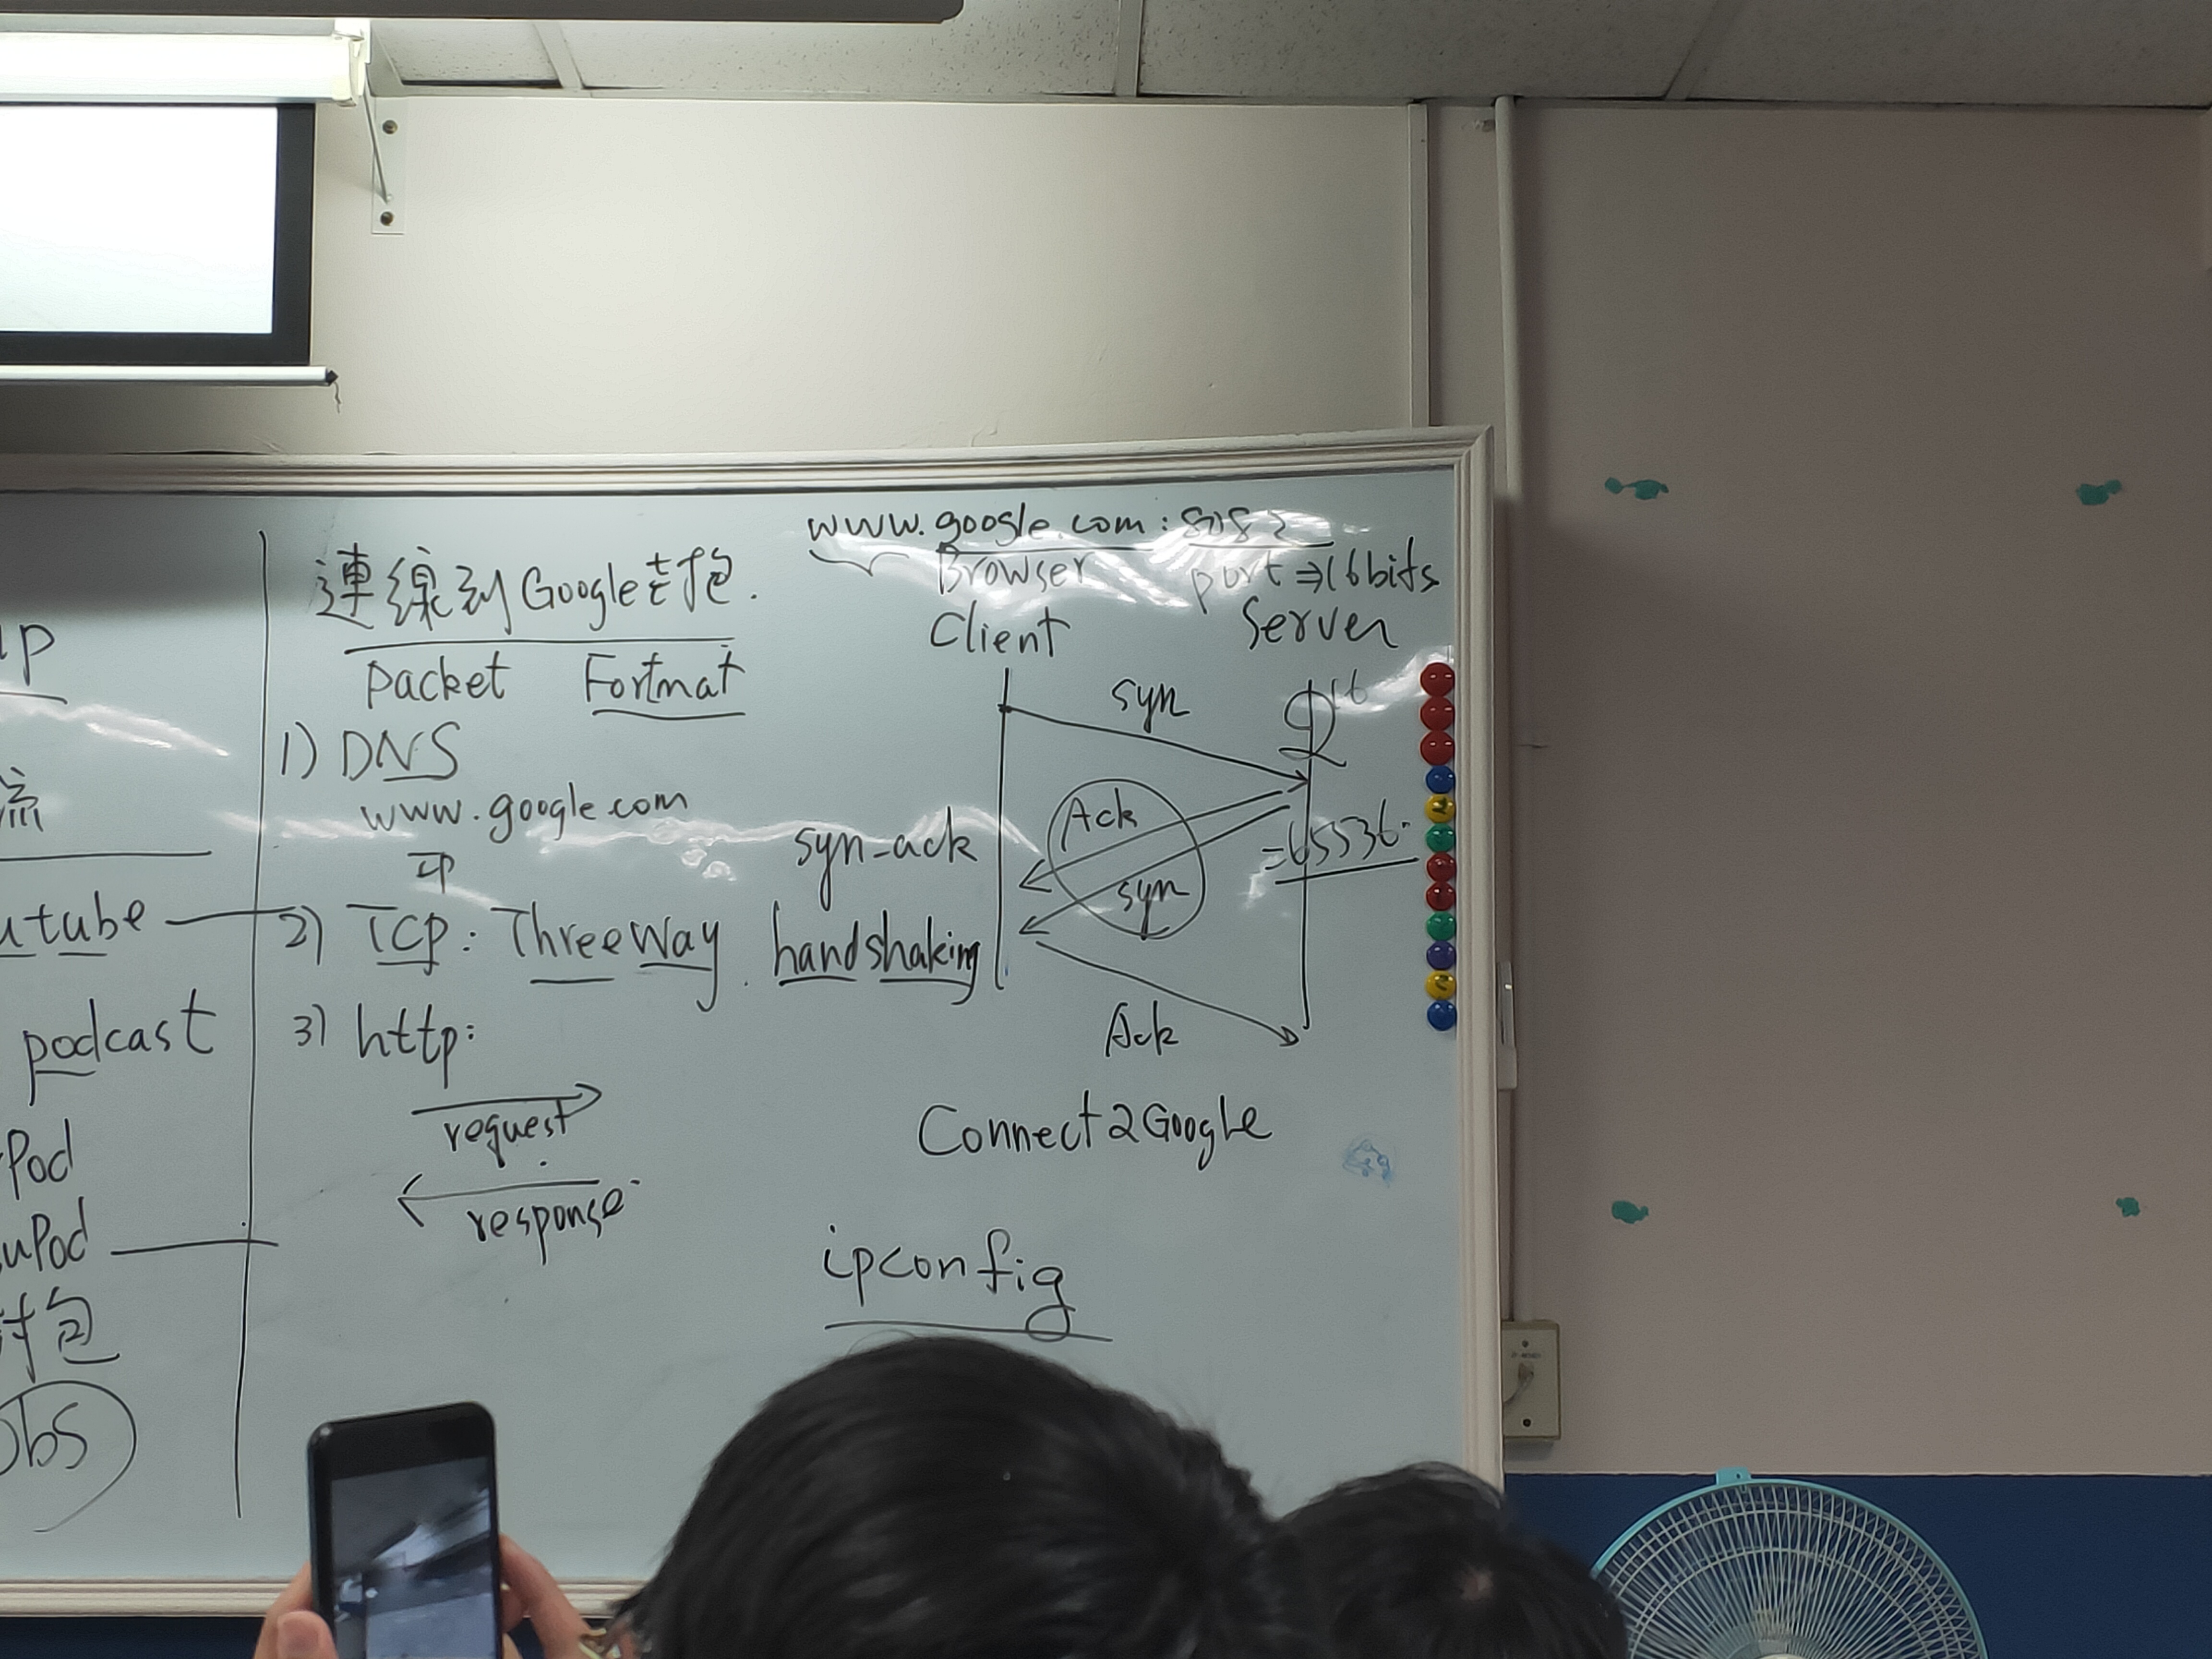 流
utube
podcast
Pod
uPod
封包
obs
連線到Google去抱.
packet Fortmat
1) DNS
www.google.com
IP
2) TCP: Three Way handshaking
3) http:
request
response
www.google.com:8082
Browser port ⇒ 16 bits
Client Server
syn 2^16
Ack
syn-ack
=65536
syn
Ack
Connect2Google
ipconfig